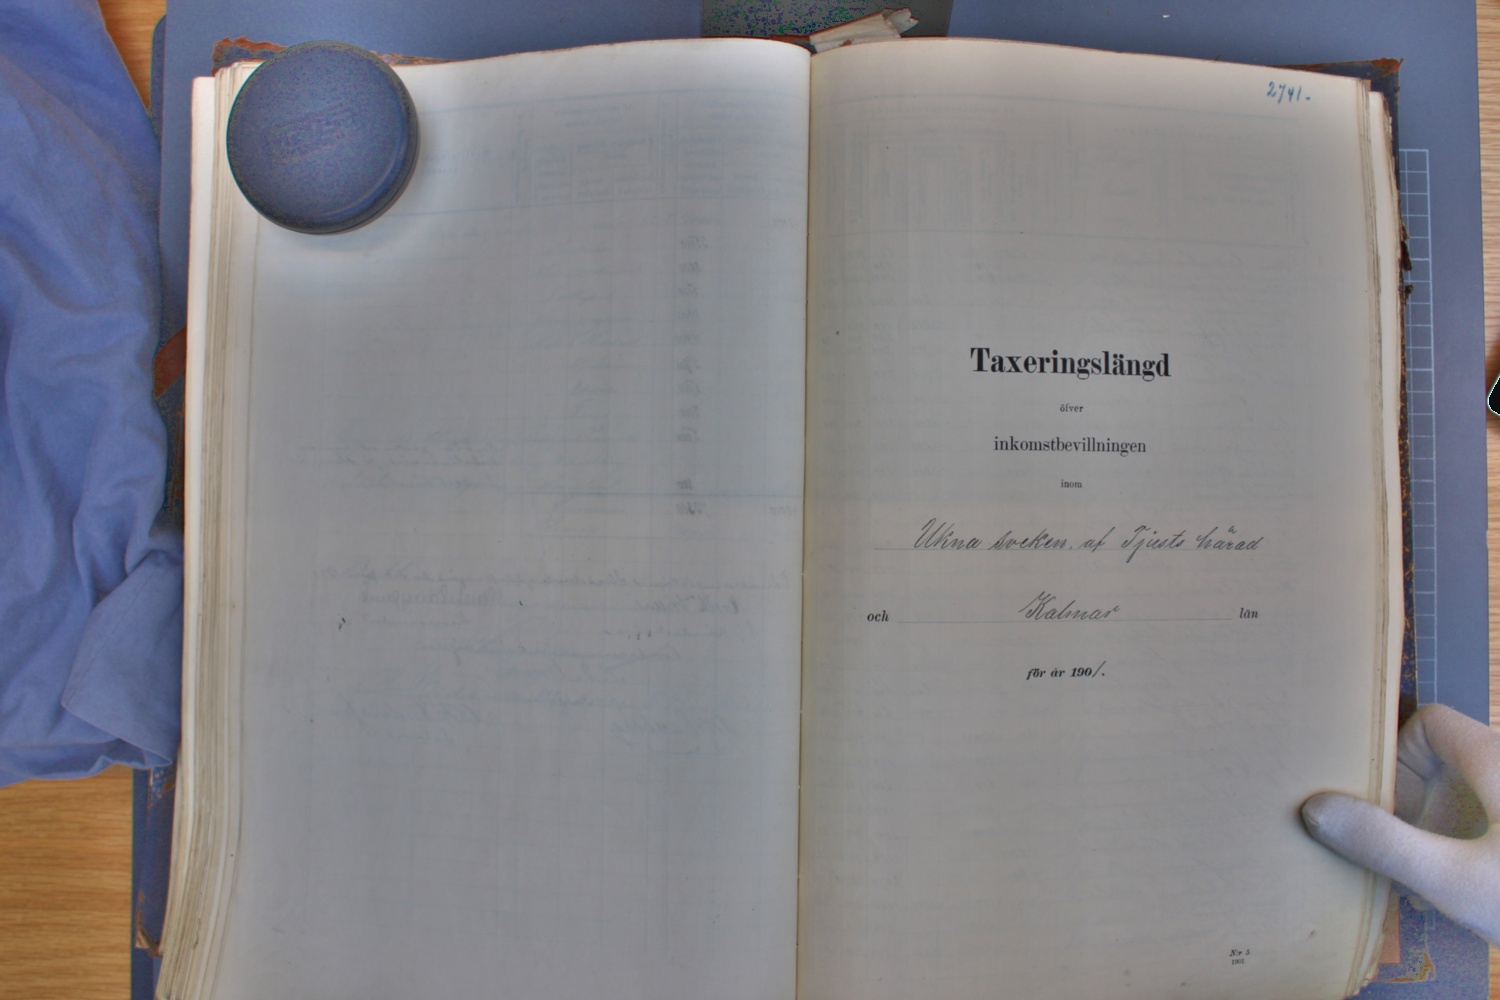 2741.
Taxeringslängd
öfver
inkomstbevillningen
inom
Ukna socken, af Tjusts härad
och Kalmar län
för år 1901.
N:r 5
1901